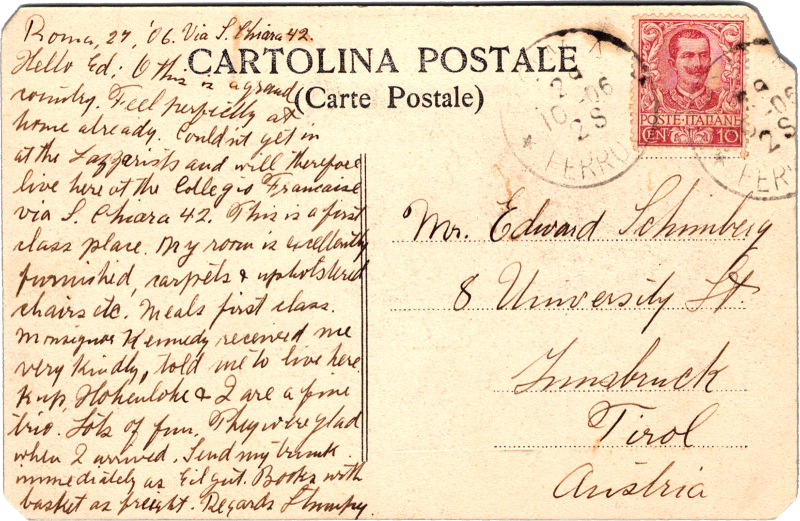 Roma, 27, '06. Via S. Chiara 42.
CARTOLINA POSTALE
(Carte Postale)
Hello Ed; O this is a grand
country. Feel perfectly at
home already. Couldn't get in
at the Lazzarists and will therefore
live here at the Collegio Francaise
via S. Chiara 42. This is a first
class place. My room is excellently
furnished, carpets & upholstered
chairs etc. Meals first class.
Monsignor Kennedy received me
very kindly, told me to live here.
Kup, Hohenlohe & I are a fine
trio. Lots of fun. They were glad
when I arrived. Send my trunk
immediately as Eilgut. Books with
basket as freight. Regards Stumpy.
POSTE·ITALIANE
CEN 10
10-06
2S
* FERRO
-06
2S
* FER
Mr. Edward Schimberg
8 University St.
Innsbruck
Tirol
Austria